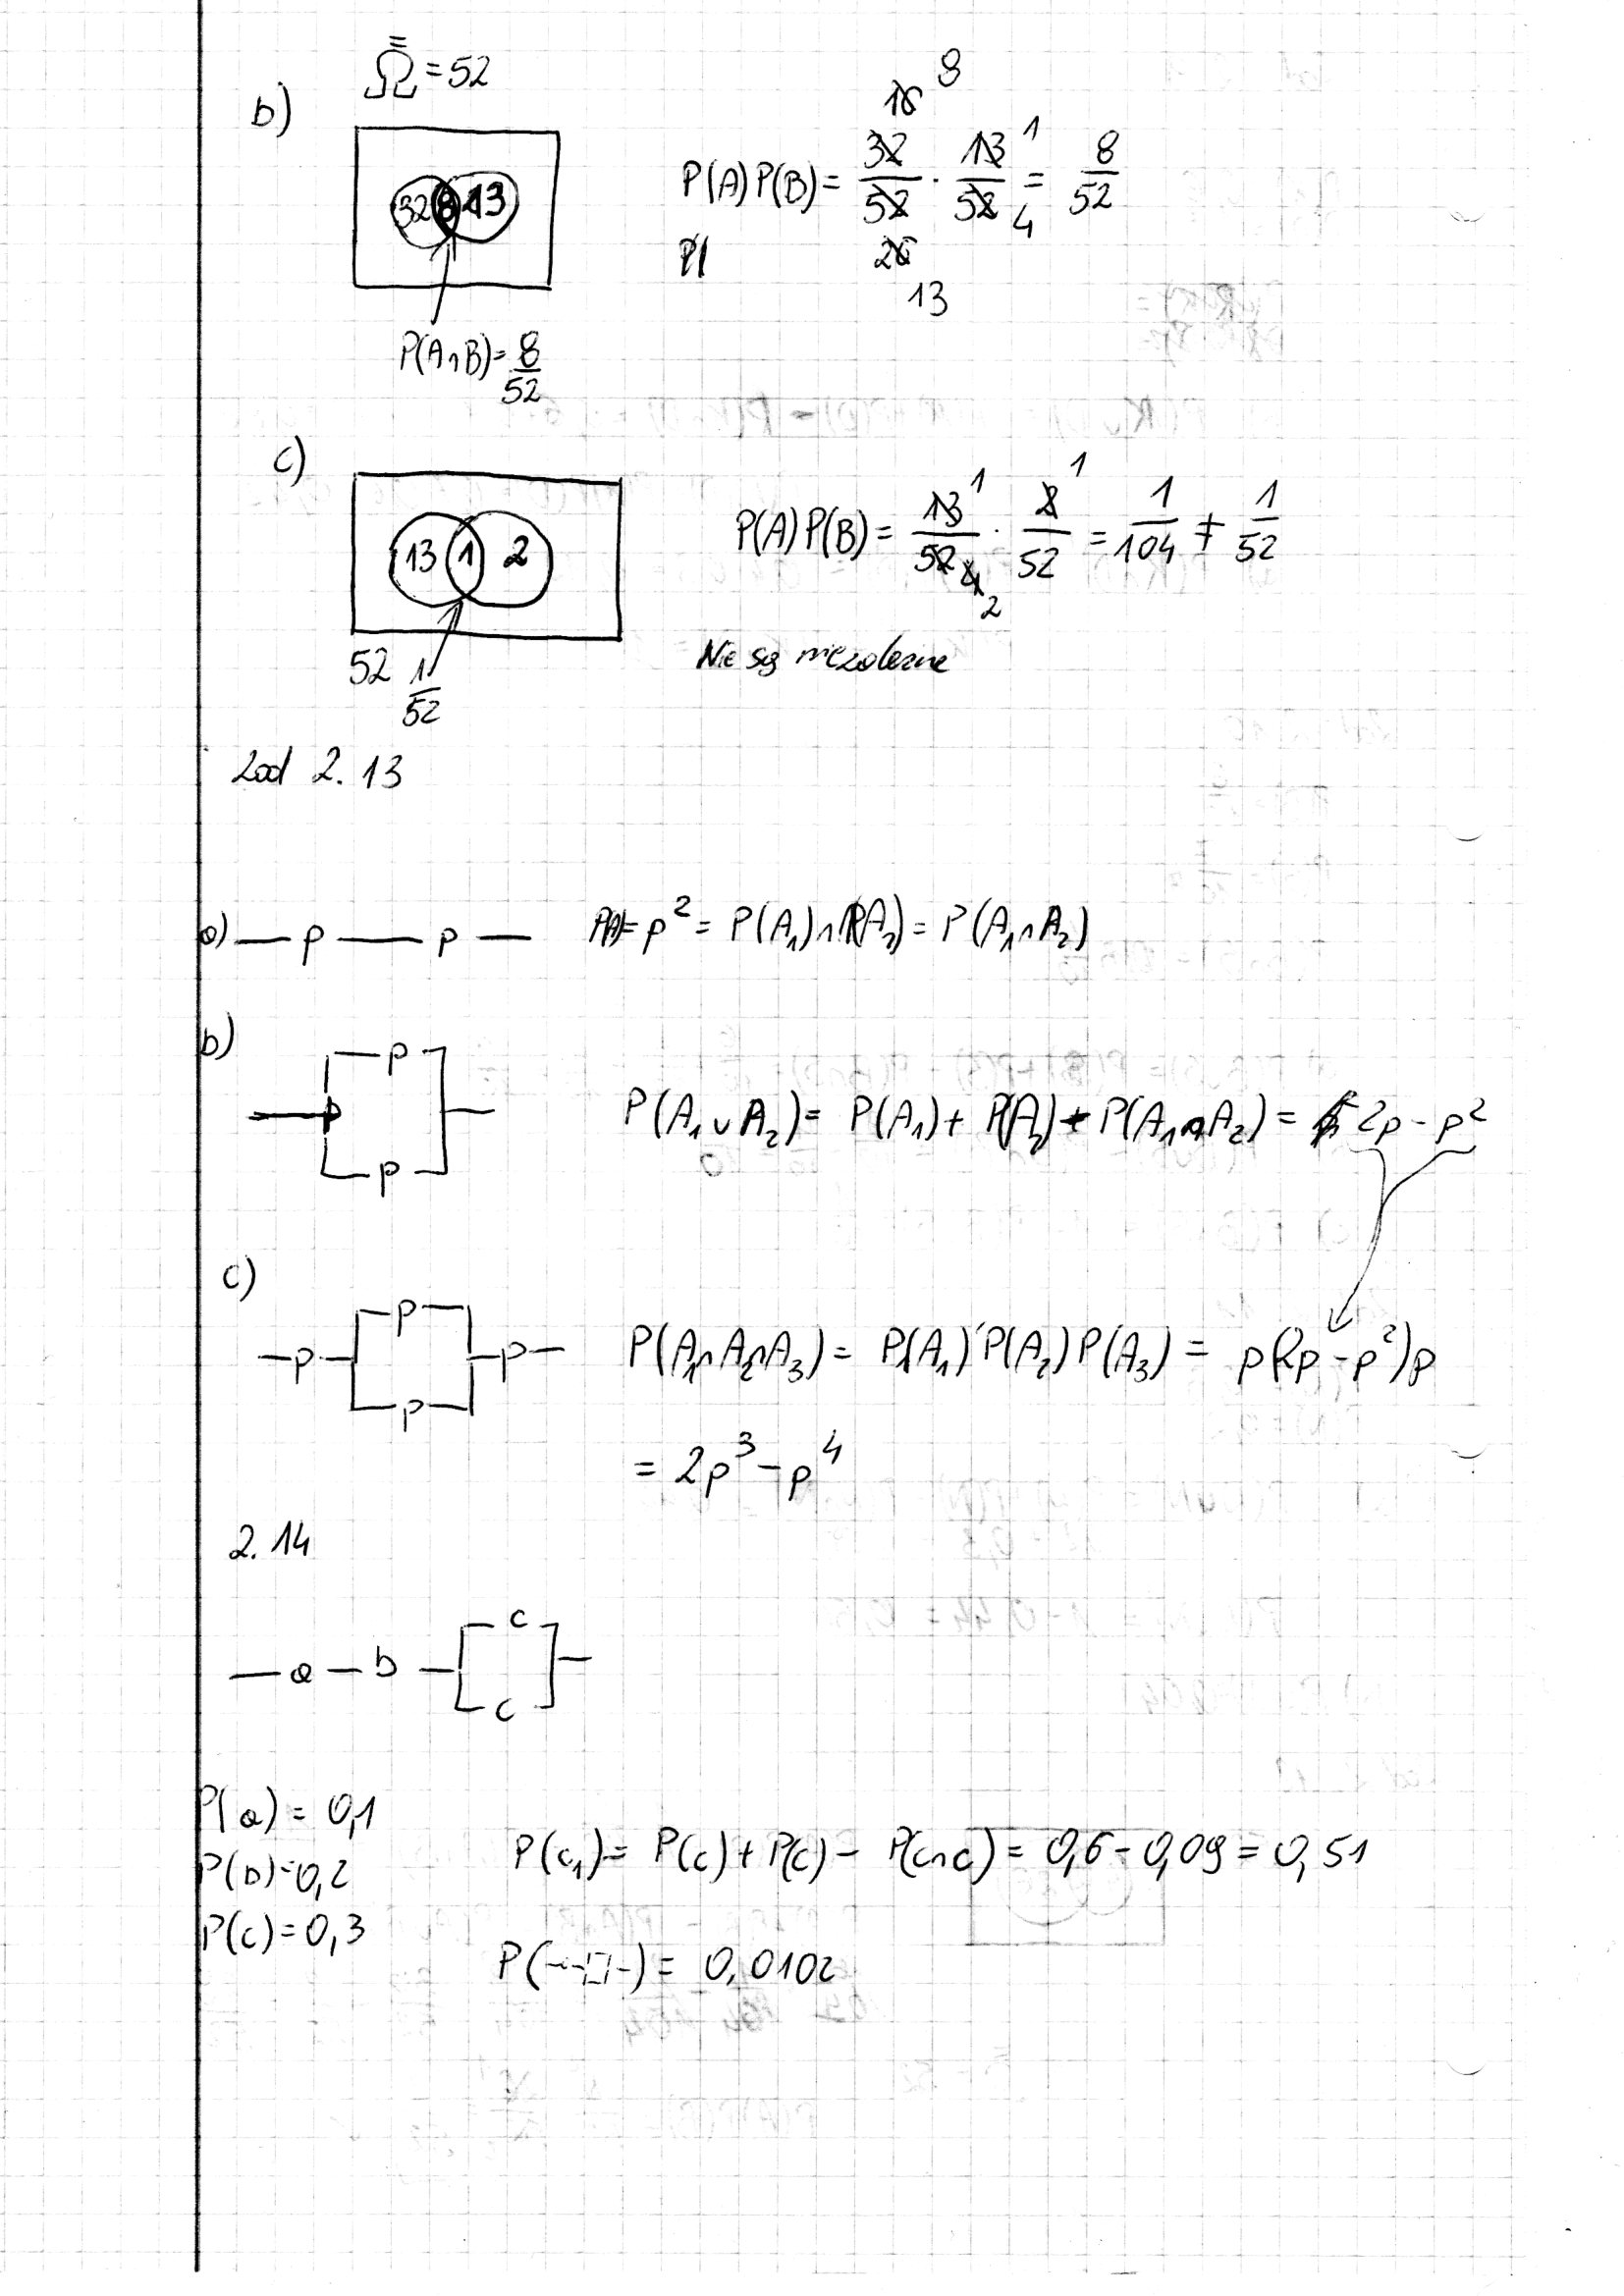 Ω̿ = 52
b)
32 8 13
P(A)P(B) = 32/52 · 13/52 = 8/52
16 8
1
4
26
13
P(A∩B) = 8/52
c)
13 1 2
P(A)P(B) = 13/52 · 2/52 = 1/104 ≠ 1/52
1 1
4
2
52 1/52
Nie są niezależne
Zad 2.13
a) — p — p — P(A) = p² = P(A₁)∩P(A₂) = P(A₁∩A₂)
b)
p
p
p
P(A₁∪A₂) = P(A₁) + P(A₂) - P(A₁∩A₂) = 2p - p²
c)
p
p p
p
P(A₁∩A₂∩A₃) = P(A₁)·P(A₂)P(A₃) = p(2p - p²)p
= 2p³ - p⁴
2.14
c
— a — b —
c
P(a) = 0,1
P(b) = 0,2
P(c) = 0,3
P(c₁) = P(c) + P(c) - P(c∩c) = 0,6 - 0,09 = 0,51
P( ) = 0,0102